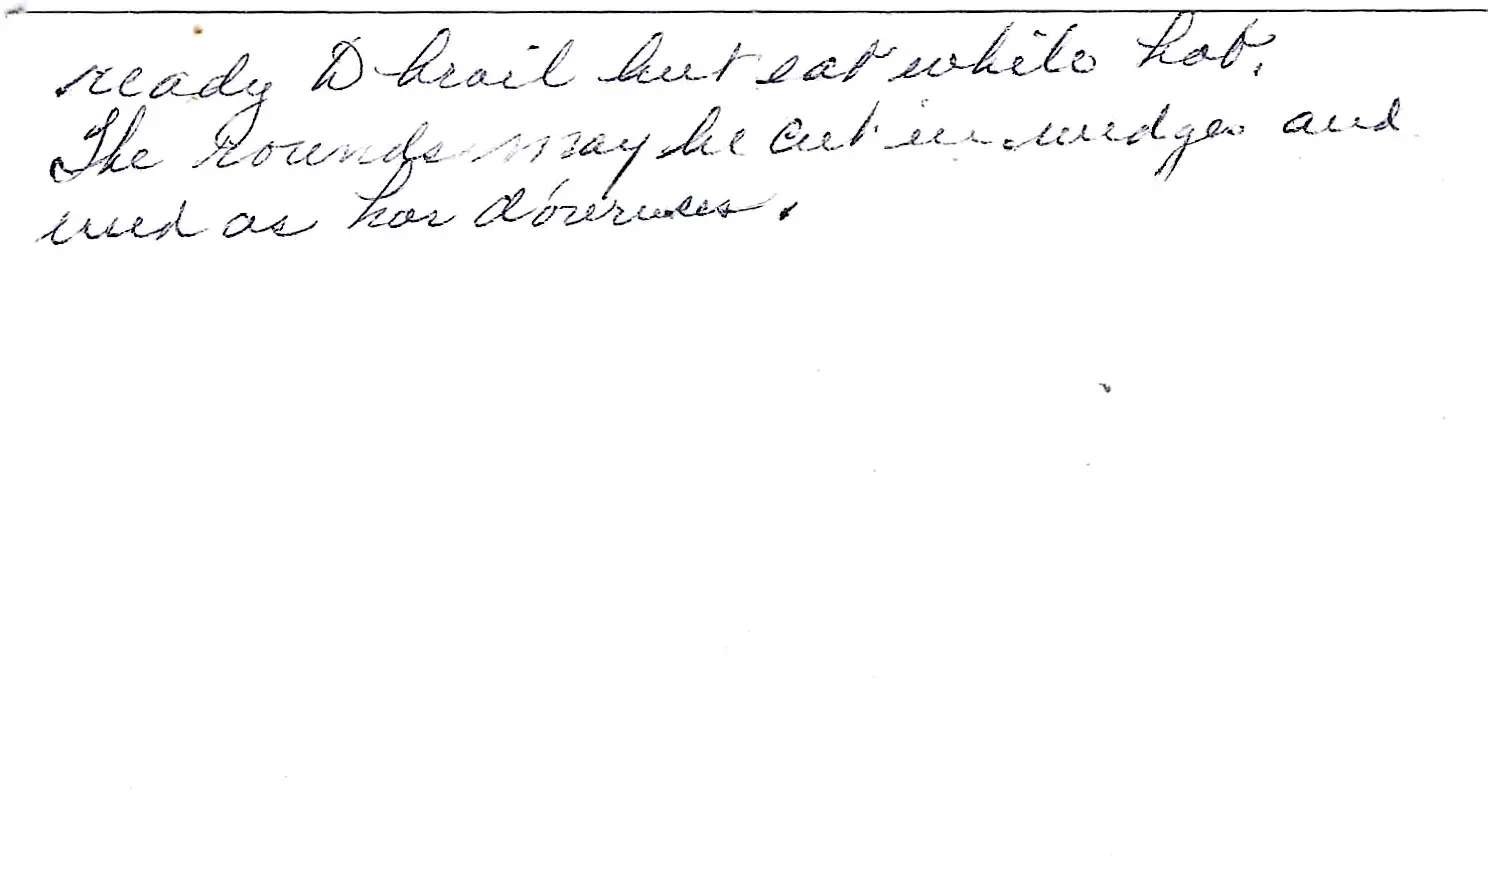 ready to broil but eat while hot.
The rounds may be cut in wedges and
used as hor d'ouerves.